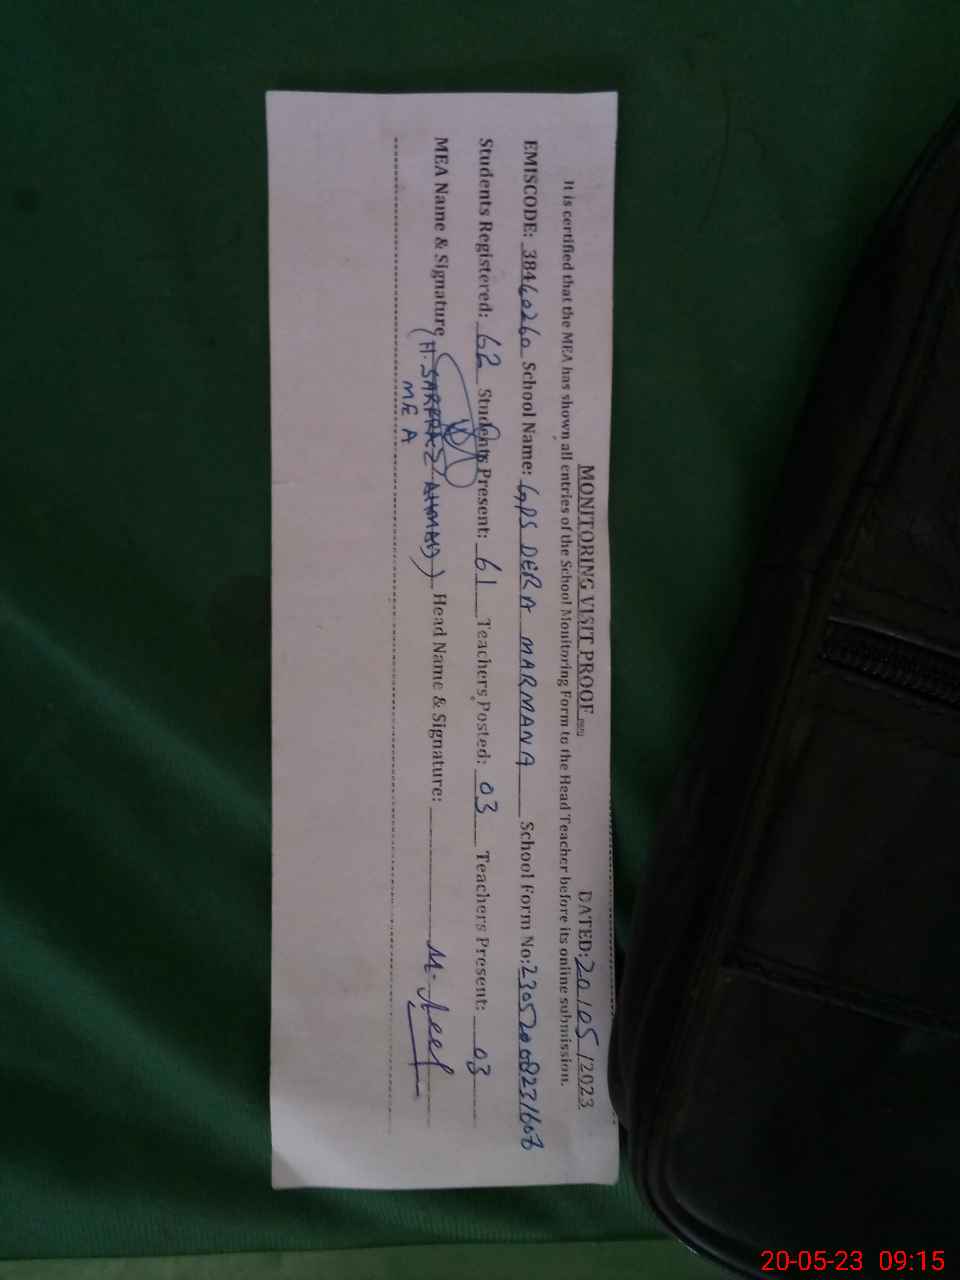 MONITORING VISIT PROOF DATED: 20/05/2023
It is certified that the MEA has shown all entries of the School Monitoring Form to the Head Teacher before its online submission.
EMISCODE: 38460260 School Name: GPS DERA MARMANA School Form No:
Students Registered: 62 Students Present: 61 Teachers Posted: 03 Teachers Present: 03
MEA Name & Signature (H. SARFRAZ AHMAD) Head Name & Signature: M.
MEA
20-05-23 09:15